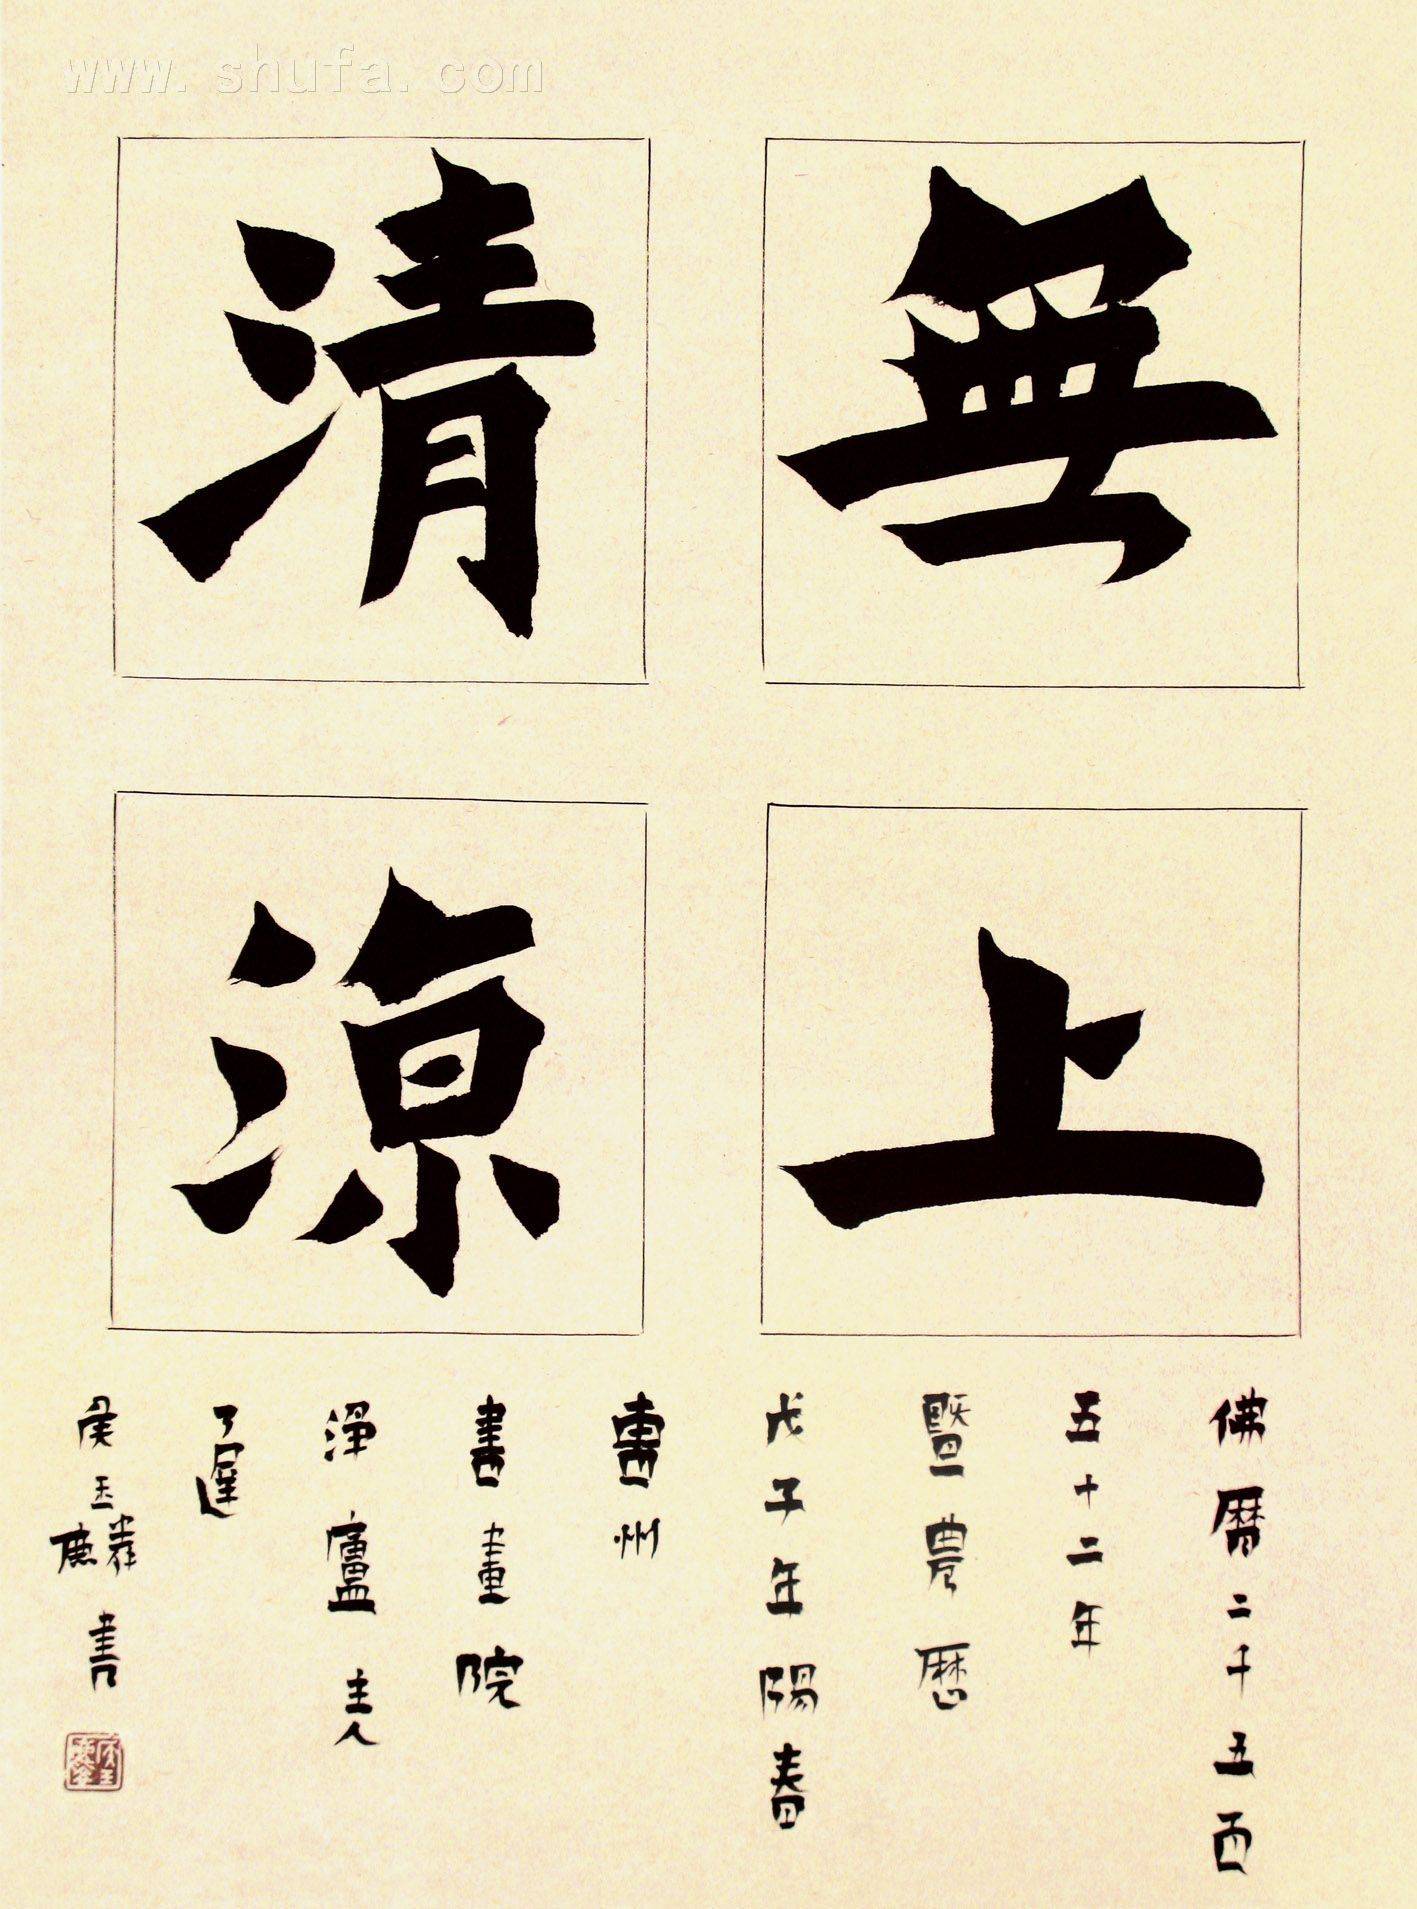 www.shufa.com
無上
清涼
佛曆二千五百
五十二年
暨農曆
戊子年陽春
曹州
書畫院
淨廬主人
了遲
侯玉麟書